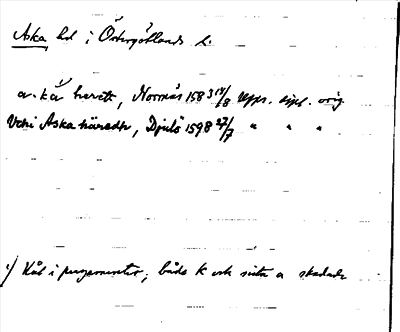 Aska hd i Östergötlands l.
a. ka¹⁾ haret, Norrnäs 1583 18/8 Upps. dipl. orig.
Vthi Aska häredh, Djulö 1598 27/7 " " "
1) Hål i pergamentet; både k och sista a skadade